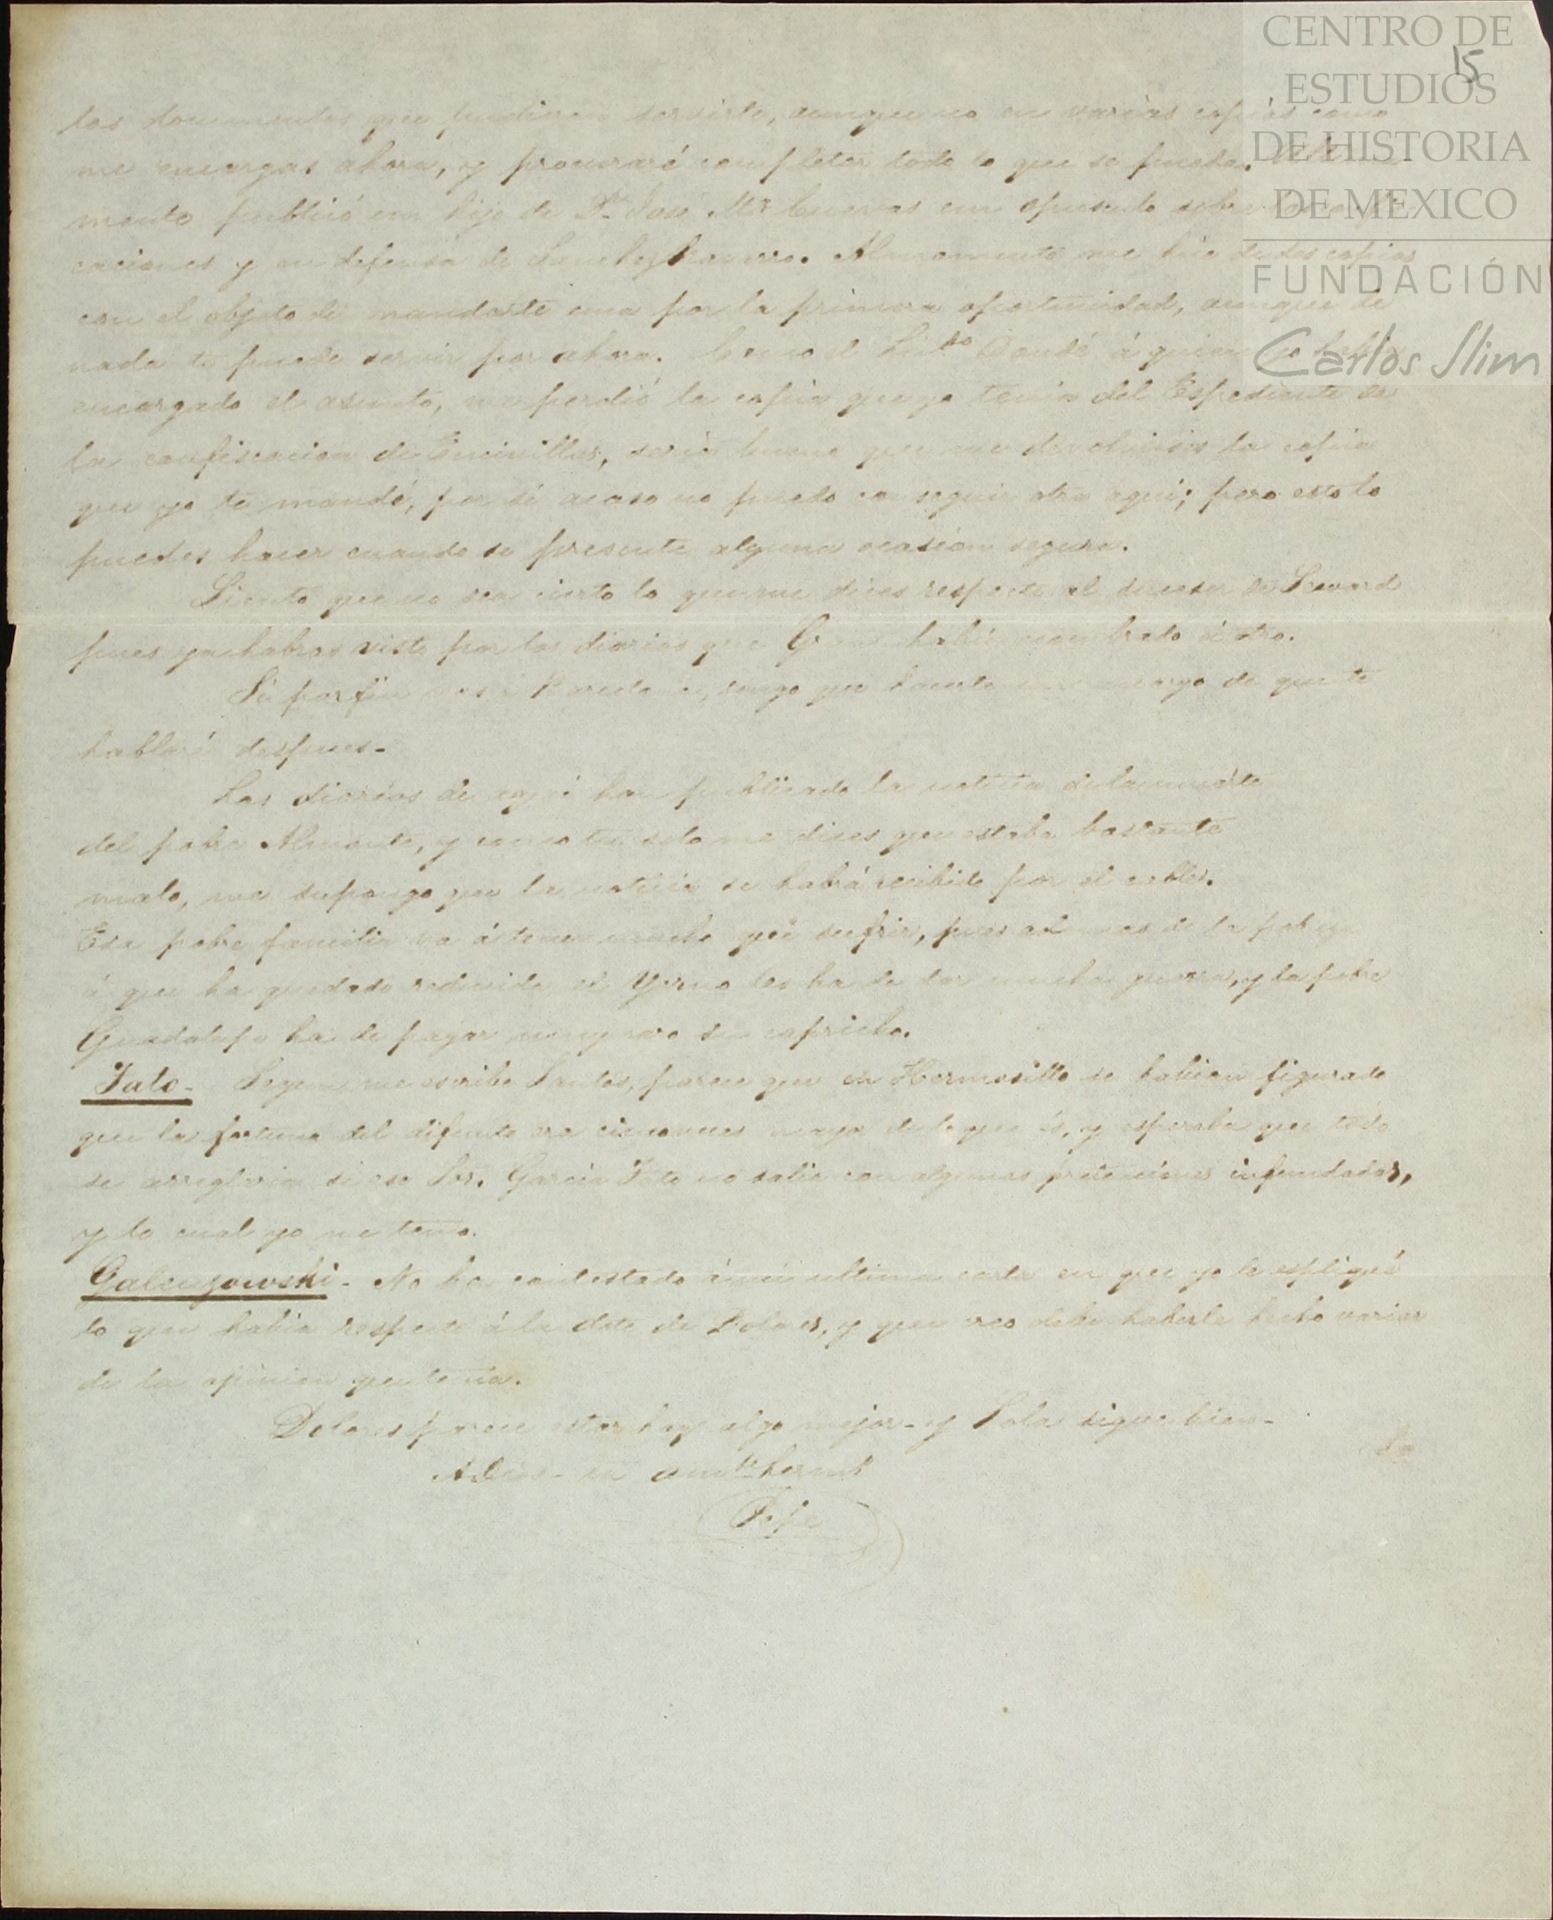 CENTRO DE
ESTUDIOS
DE HISTORIA
DE MEXICO
FUNDACIÓN
Carlos Slim
15
los documentos que pudieran servirte, aunque no en varias copias como
me encargas ahora, y procuraré completar todo lo que se pueda.
mente publicó un hijo de Dn. Jose Ma Cuevas un opusculo sobre
caciones y en defensa de Sanchez Navarro. me hice de dos copias
con el objeto de mandarte una por la primera oportunidad, aunque de
nada te puede servir por ahora. Como el Licdo á quien yo había
encargado el asunto, me perdió la copia que yo tenia del Espediente de
la confiscacion de Encinillas, seria bueno que me devolvieses la copia
que yo te mandé, por si acaso no puedo conseguir otra aqui; pero esto lo
puedes hacer cuando se presente alguna ocasión segura.
Siento que no sea cierto lo que me dices respecto al sucesor de Seward
pues ya habras visto por los diarios que Grant había nombrado á otro.
Si por fin vas á Barcelona, tengo que hacerte un encargo de que te
hablaré despues.
Los diarios de aquí han publicado la noticia de la muerte
del pobre Almonte, y como tu solo me dices que estaba bastante
malo, me supongo que la noticia se habrá recibido por el cable.
Esa pobre familia va á tener mucho que sufrir, pues ademas de la pobreza
á que ha quedado reducida el Yerno les ha de dar mucha guerra, y la pobre
Guadalupe ha de pagar muy caro su capricho.
Tato. Segun me escribe Santos, parece que en Hermosillo se habian figurado
que la fortuna del difunto era cinco veces mayor de lo que es, y esperaba que todo
se arreglaria si ese Sor. Garcia Tato no salia con algunas pretenciones infundadas,
y lo cual yo me temo.
Galenzowski. No ha contestado á mi ultima carta en que yo le espliqué
lo que habia respecto á la dote de Dolores, y que creo debe haberle hecho variar
de la opinion que tenia.
Dolores parece estar hoy algo mejor - y Lola sigue bien -
Adios - tu amte hermo
Pepe